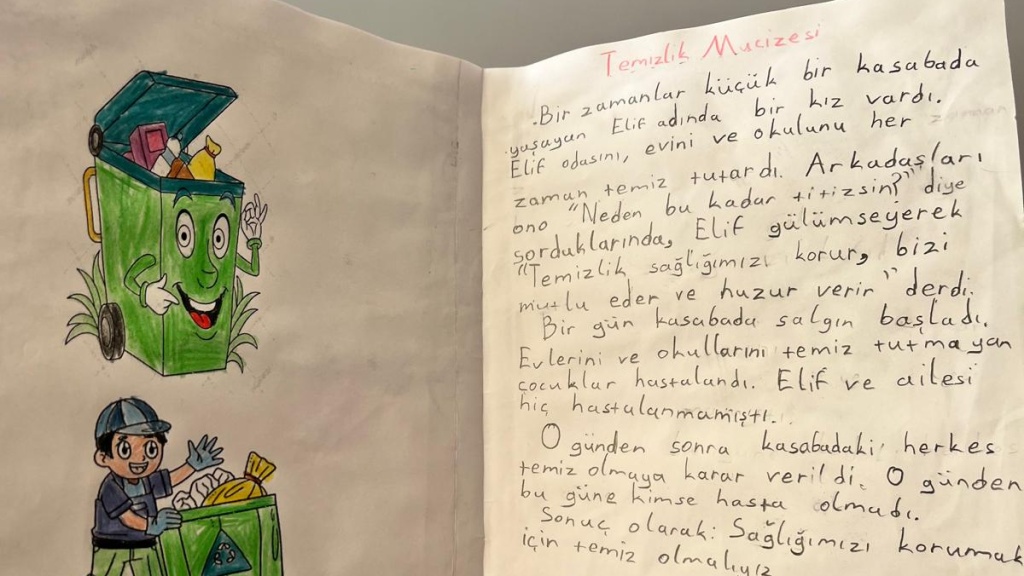 Temizlik Mucizesi
.Bir zamanlar küçük bir kasabada
yaşayan Elif adında bir kız vardı.
Elif odasını, evini ve okulunu her
zaman temiz tutardı. Arkadaşları
ono "Neden bu kadar titizsin?" diye
sorduklarında, Elif gülümseyerek
"Temizlik sağlığımızı korur, bizi
mutlu eder ve huzur verir" derdi.
Bir gün kasabada salgın başladı.
Evlerini ve okullarını temiz tutmayan
çocuklar hastalandı. Elif ve ailesi
hiç hastalanmamıştı.
O günden sonra kasabadaki herkes
temiz olmaya karar verildi. O günden
bu güne kimse hasta olmadı.
Sonuç olarak: Sağlığımızı korumak
için temiz olmalıyız